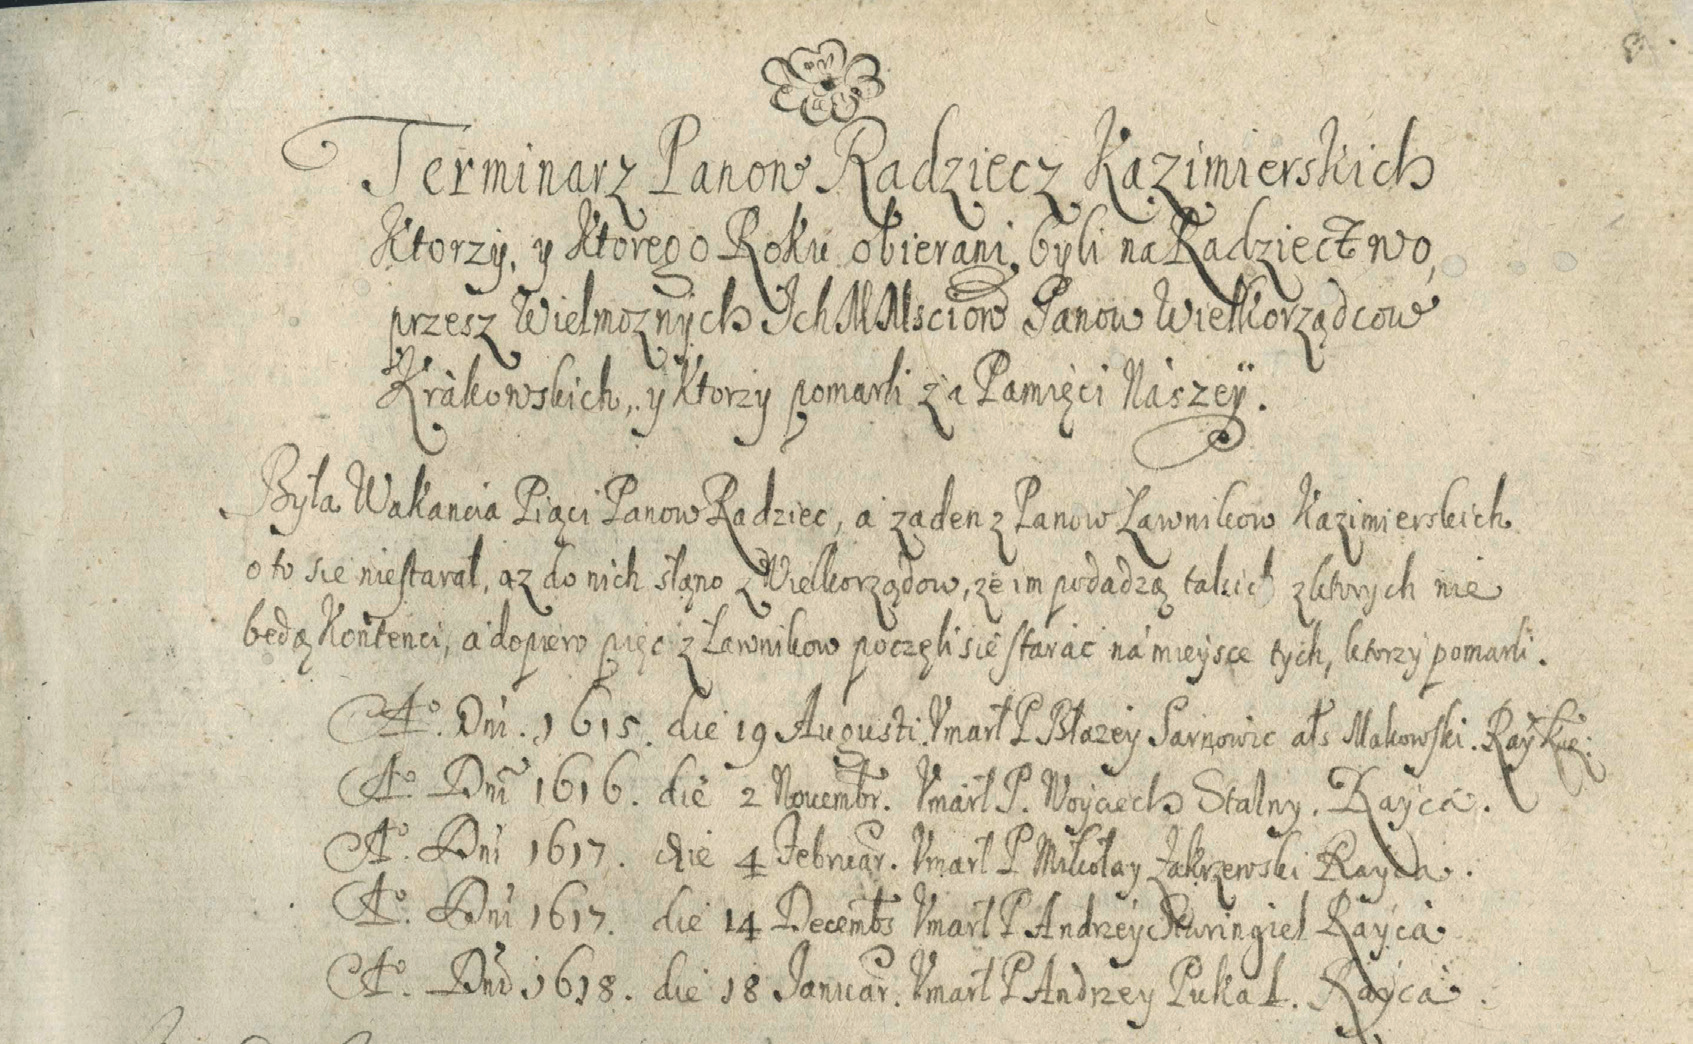 Terminarz Panow Radziecz Kazimierskich
Ktorzy, y Ktorego Roku obierani byli na Radziectwo,
przesz Wielmoznych Ich MMsciow Panow Wielkorządcow
Krákowskich, y Ktorzy pomarli zá Pamięci Nászeÿ.
Była Wakancia Piąci Panow Radziec, á zaden z Panow Ławnikow Kazimierskich
o to sie niestarał, az do nich słano z Wielkorządow, ze im podadzą takich z ktorych nie
będą Kontenci, a dopiero pięc z Ławnikow poczęli sie starac ná mieysce tych, ktorzy pomarli.
Aº. Dni. 1615. die 19 Augusti. Vmarł P Błazey Sarnowic als Makowski. Rayca
Aº. Dni 1616. die 2 Novembr. Vmarł P. Woyciech Stalny. Rayca.
Aº. Dni 1617. die 4 Februar. Vmarł P Mikołay Zakrzewski Rayca.
Aº. Dni 1617. die 14 Decembs Vmarł P Andrzey Rayca
Aº. Dni 1618. die 18 Januar. Vmarł P Andrzey Pukal. Rayca.